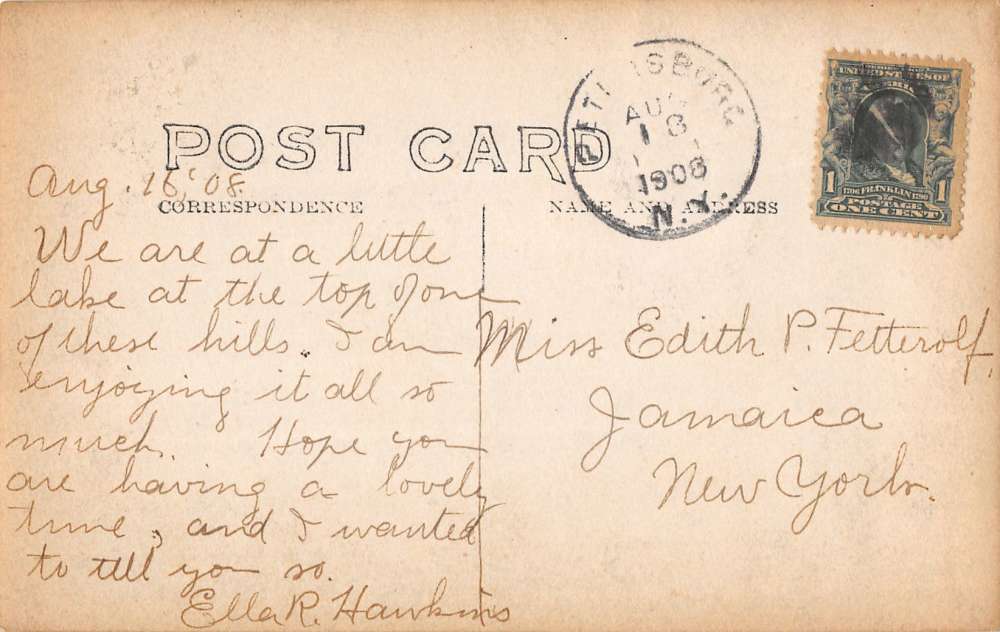 POST CARD
CORRESPONDENCE
NAME AND ADDRESS
AUG
18
1908
N.Y.
UNITED STATES OF
AMERICA
1 1706 FRANKLIN 1790 1
POSTAGE
ONE CENT
Aug. 16, '08.
We are at a little
lake at the top of one
of these hills. I am
enjoying it all so
much. Hope you
are having a lovely
time, and I wanted
to tell you so.
Ella R. Hawkins
Miss Edith P. Fetterolf,
Jamaica
New York.